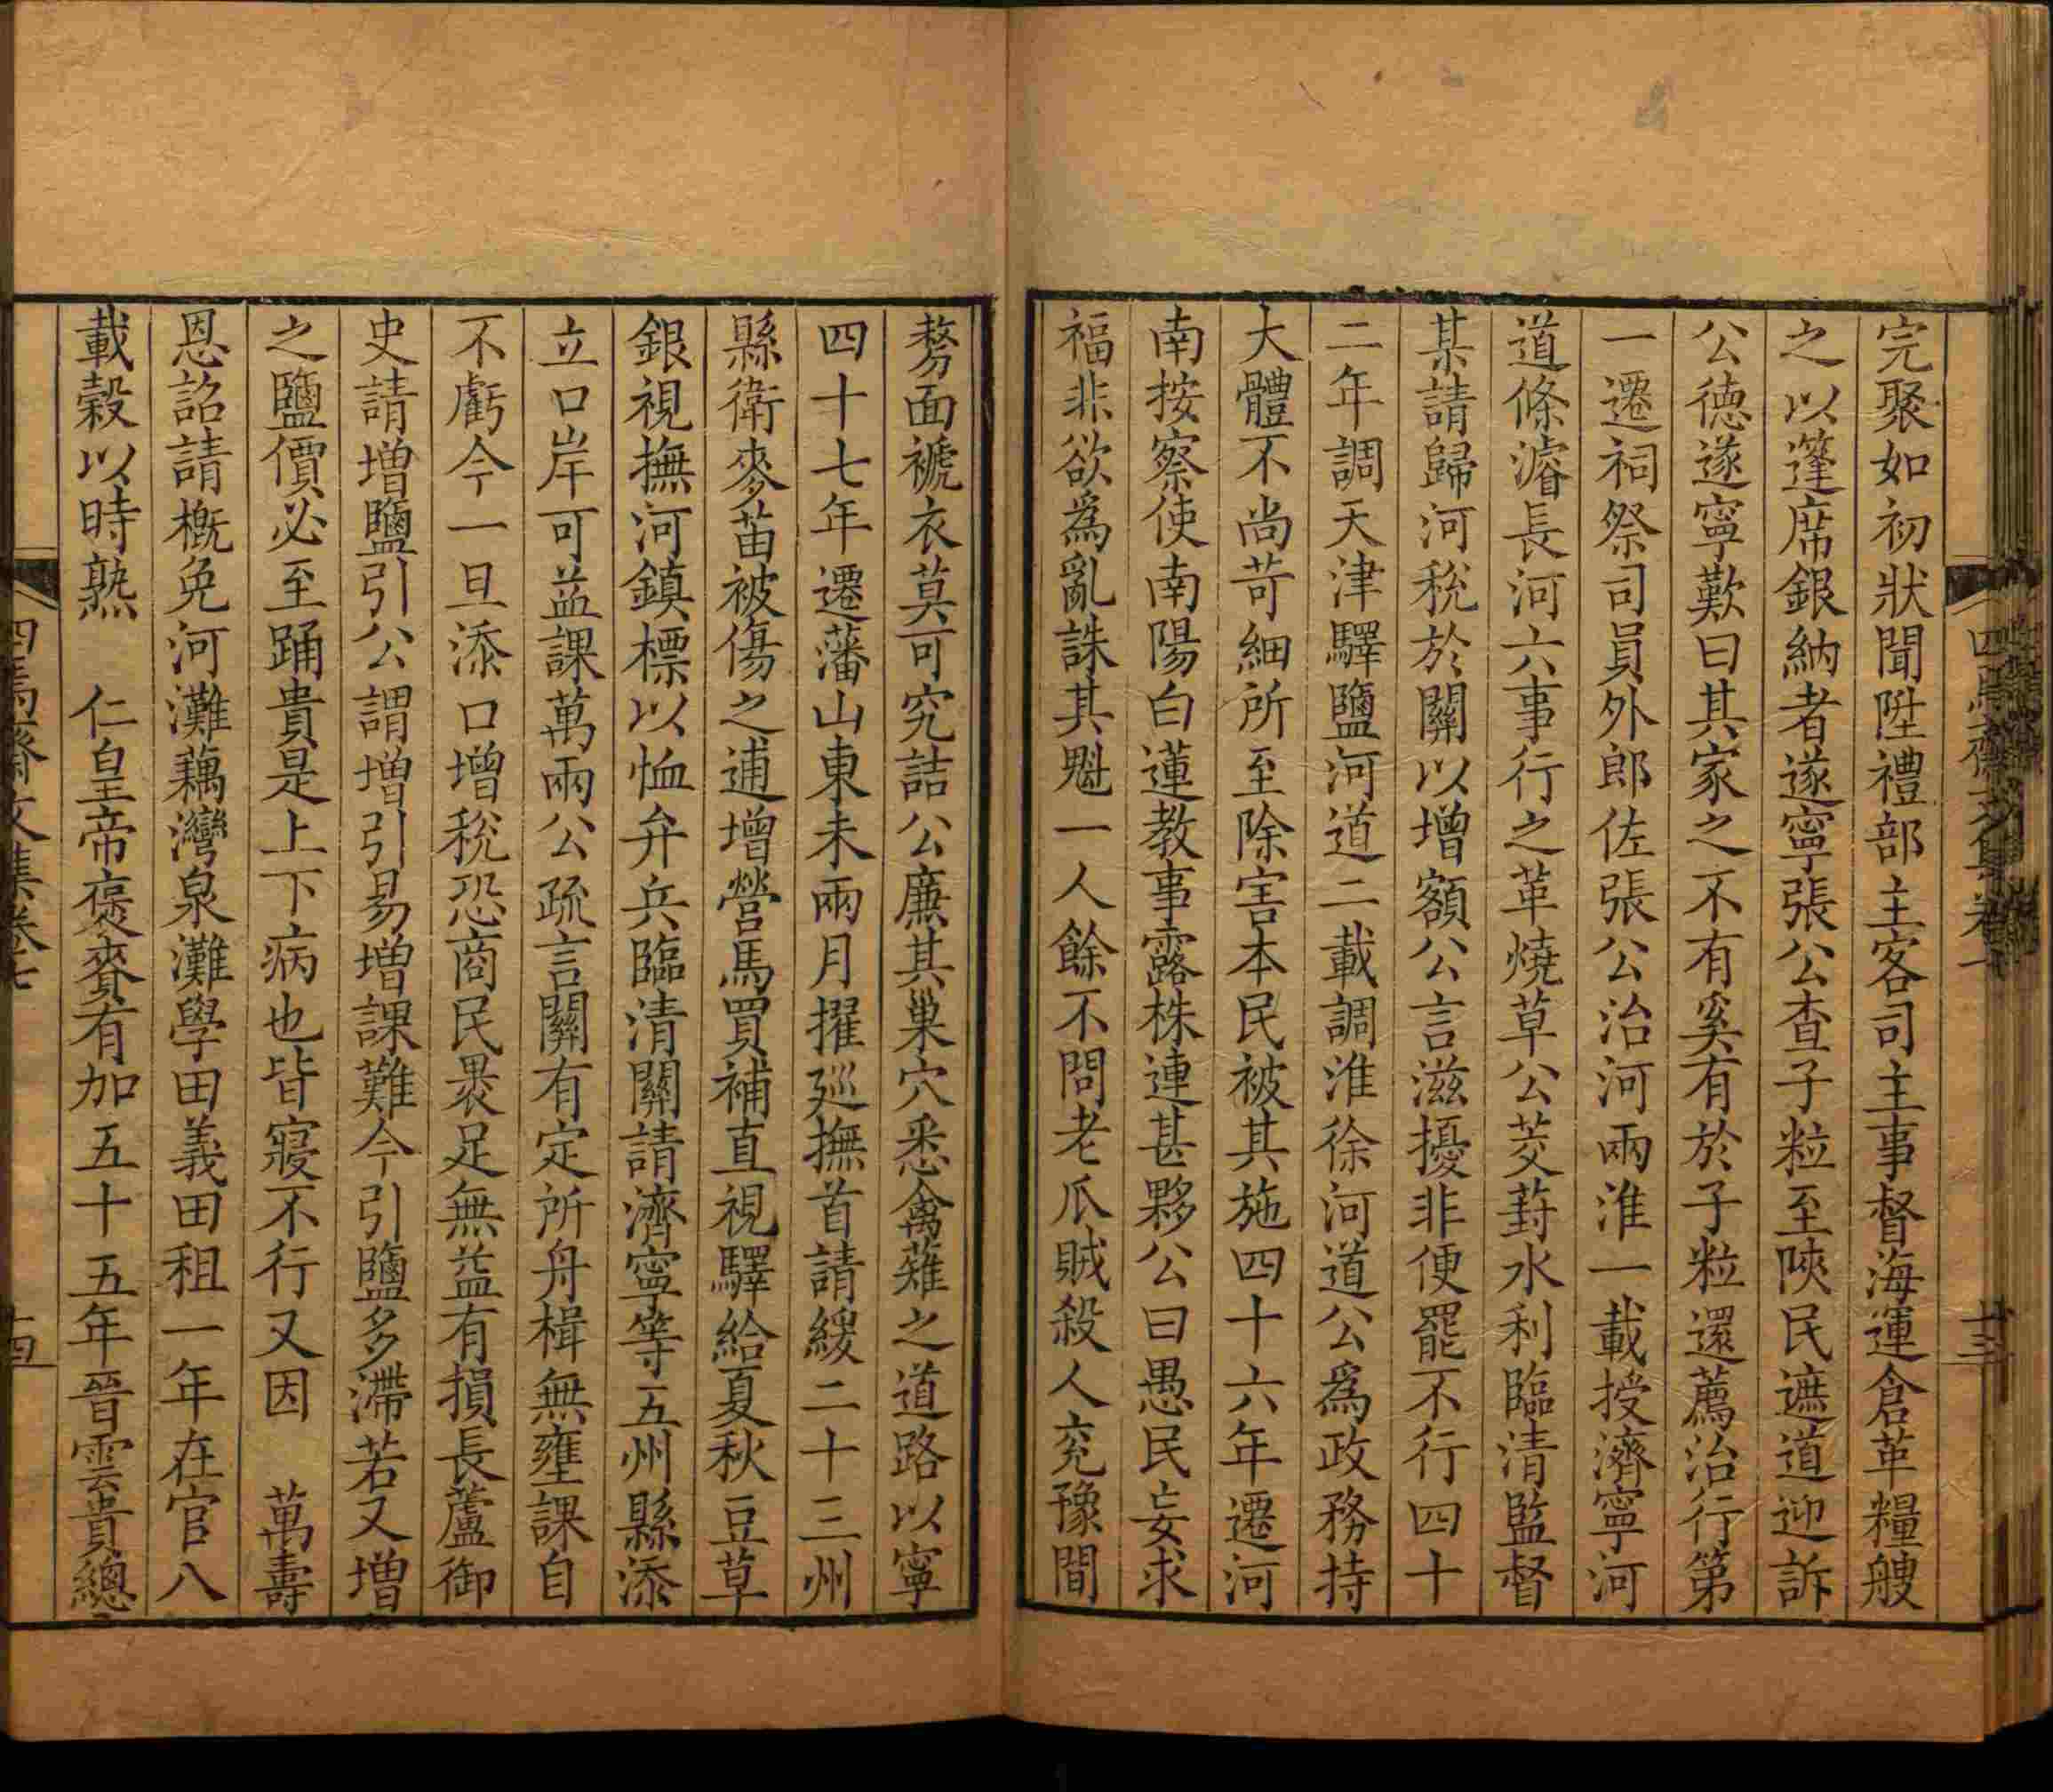 完聚如初狀聞陞禮部主客司主事督海運倉革糧艘
之以篷席銀納者遂寧張公查子粒至陝民遮道迎訴
公德遂寧歎曰其家之不有奚有於子粒還薦治行第
一遷祠祭司員外郎佐張公治河兩淮一載授濟寧河
道條濬長河六事行之革燒草公茭葑水利臨清監督
某請歸河稅於關以增額公言滋擾非便罷不行四十
二年調天津驛鹽河道二載調淮徐河道公為政務持
大體不尚苛細所至除害本民被其施四十六年遷河
南按察使南陽白蓮教事露株連甚夥公曰愚民妄求
福非欲為亂誅其魁一人餘不問老瓜賊殺人兖豫間
剺面褫衣莫可究詰公廉其巢穴悉禽薙之道路以寧
四十七年遷藩山東未兩月擢廵撫首請緩二十三州
縣衛麥苗被傷之逋增營馬買補直視驛給夏秋豆草
銀視撫河鎮標以恤弁兵臨清關請濟寧等五州縣添
立口岸可益課萬兩公疏言關有定所舟楫無壅課自
不虧今一旦添口增稅恐商民裹足無益有損長蘆御
史請增鹽引公謂增引易增課難今引鹽多滯若又增
之鹽價必至踊貴是上下病也皆寢不行又因　萬壽
恩詔請概免河灘藕灣泉灘學田義田租一年在官八
載穀以時熟　仁皇帝褒賚有加五十五年晉雲貴總